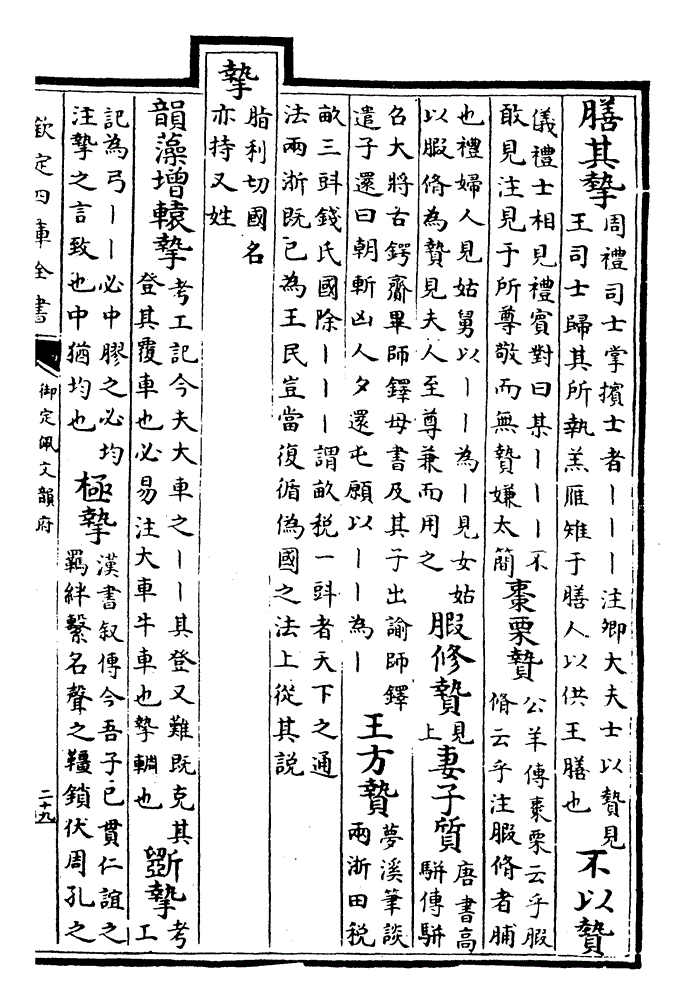 膳其摯
周禮司士掌擯士者丨丨丨注卿大夫士以贄見
王司士歸其所執羔雁雉于膳人以供王膳也
不以贄
儀禮士相見禮賓對曰某丨丨丨不
敢見注見于所尊敬而無贄嫌太簡
棗栗贄
公羊傳棗栗云乎腶
脩云乎注腶脩者脯
也禮婦人見姑舅以丨丨為丨見女姑
以腶脩為贄見夫人至尊兼而用之
腶修贄
見
上
妻子質
唐書高
駢傳駢
召大將古鍔齋畢師鐸母書及其子出諭師鐸
遣子還曰朝斬凶人夕還屯願以丨丨為丨
王方贄
夢溪筆談
兩浙田税
畝三㪷錢氏國除丨丨丨謂畝税一㪷者天下之通
法兩浙既已為王民豈當復循偽國之法上從其説
摯
脂利切國名
亦持又姓
韻藻增轅摯
考工記今夫大車之丨丨其登又難既克其
登其覆車也必易注大車牛車也摯輖也
斵摯
考
工
記為弓丨丨必中膠之必均
注摯之言致也中猶均也
極摯
漢書叙傳今吾子已貫仁誼之
羈絆繫名聲之韁鎖伏周孔之
欽定四庫全書
御定佩文韻府
二十九